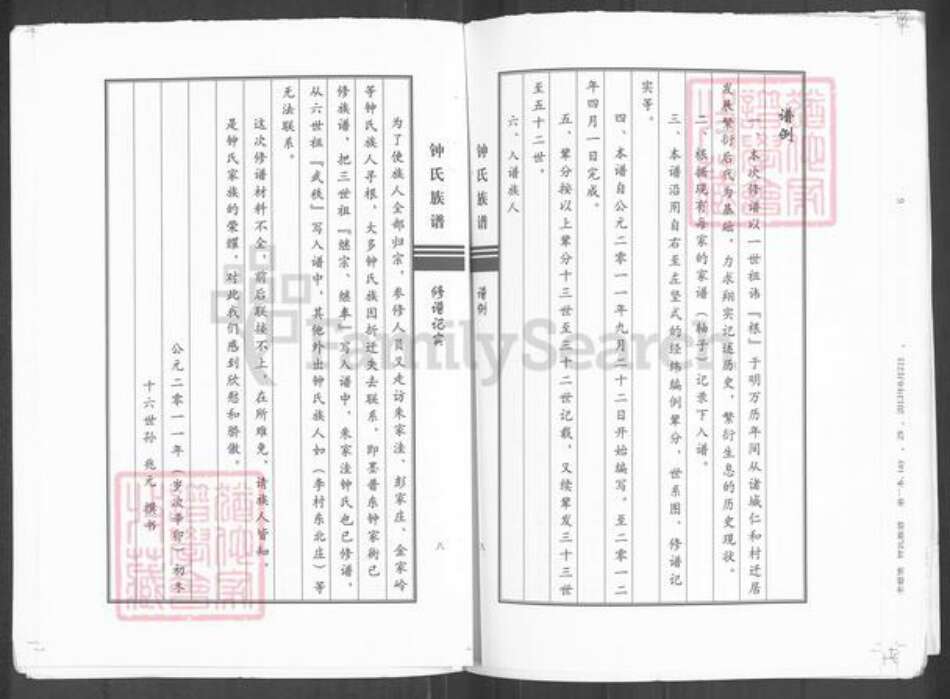 谱例
一、本次修谱以一世祖讳『根』于明万历年间从诸城仁和村迁居
发展繁衍后代为基础，力求翔实记述历史，繁衍生息的历史现状。
二、根据现有每家的家谱（轴子）记录下入谱。
三、本谱沿用自右至左竖式的经纬编例辈分，世系图，修谱记
实等。
四、本谱自公元二零一一年九月二十二日开始编写，至二零一二
年四月一日完成。
五、辈分按以上辈分十三世至三十二世记载，又续辈发三十三世
至五十二世。
六、入谱族人
钟氏族谱
谱例
八
钟氏族谱
修谱记实
八
为了使族人全部归宗，参修人员又走访朱家洼、彭家庄、金家岭
等钟氏族人寻根，大多钟氏族因拆迁失去联系，即墨普东钟家街已
修族谱，把三世祖『继宗、继奉』写入谱中，朱家洼钟氏也已修谱，
从六世祖『武秩』写入谱中，其他外出钟氏族人如（李村东北庄）等
无法联系。
这次修谱材料不全，前后联接不上，在所难免，请族人皆知。
是钟氏家族的荣耀，对此我们感到欣慰和骄傲。
公元二零一一年（岁次辛卯）初冬
十六世孙 兆元 撰书
FamilySearch